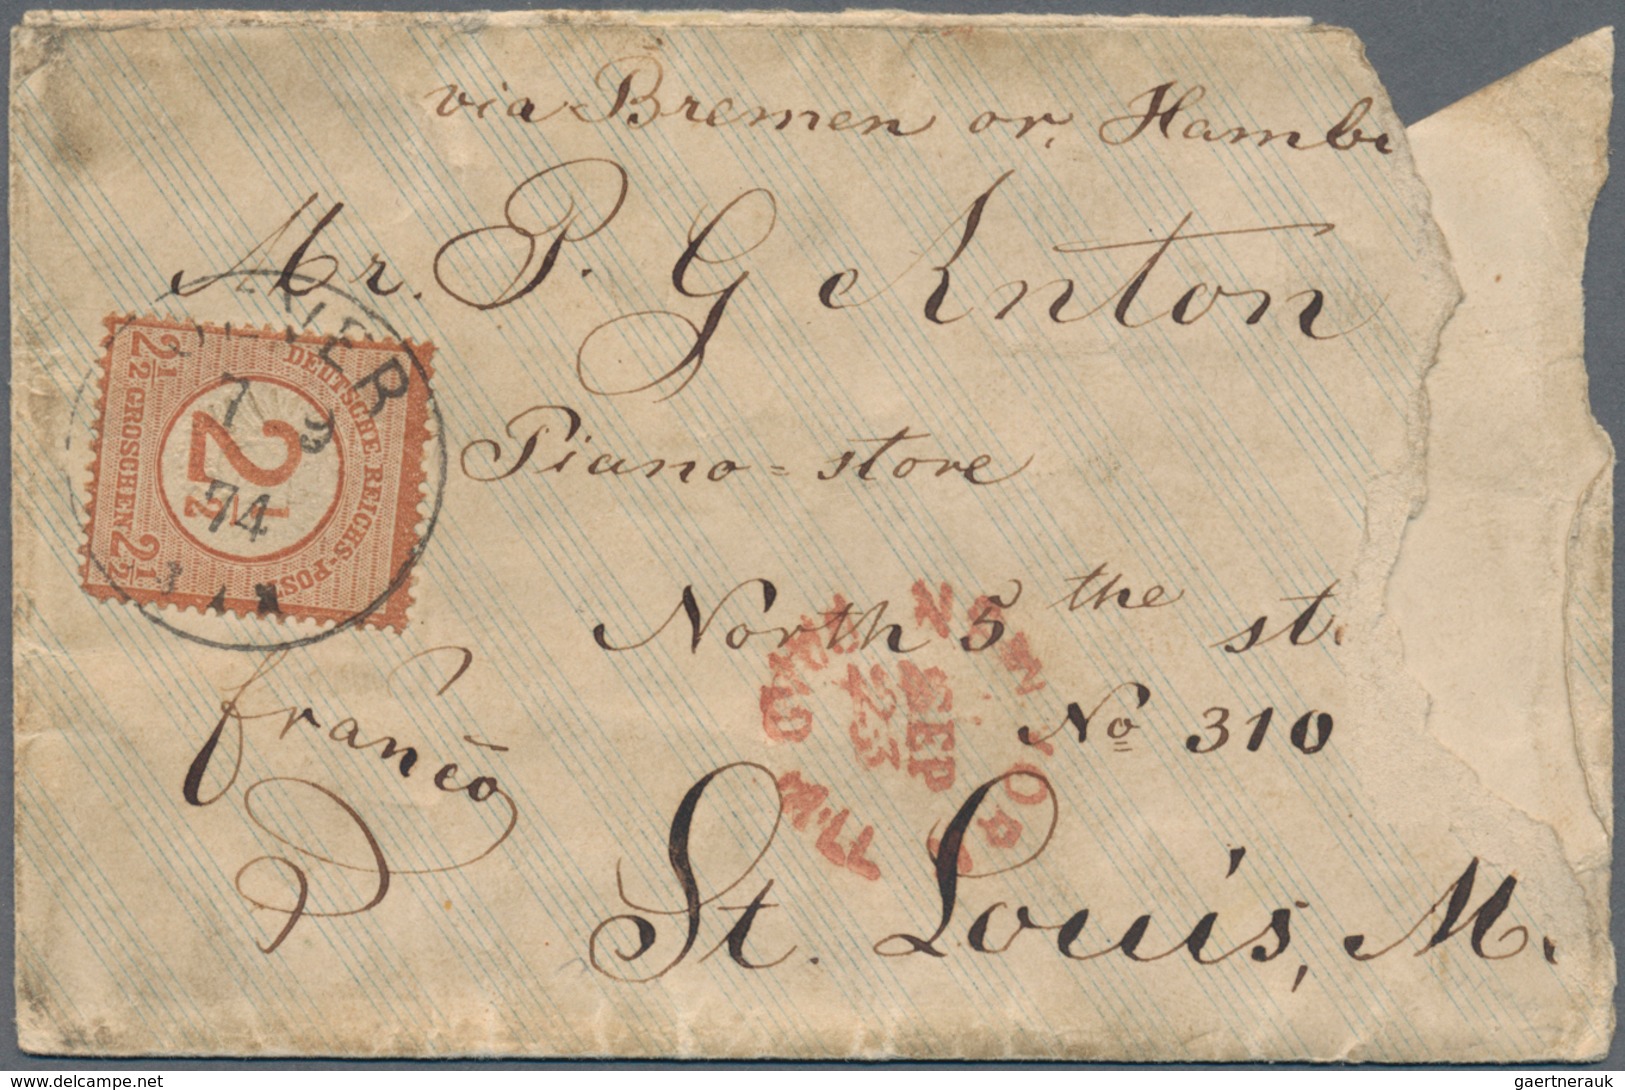 via Bremen or, Hamb
Mr. P. G Anton
Piano=store
North 5 the st.
No 310
St. Louis, M.
franco
DEUTSCHE REICHS-POST
2½ GROSCHEN 2½
2½
7 9
74
NEW YORK
SEP
23
PAID ALL
gaertnerauk